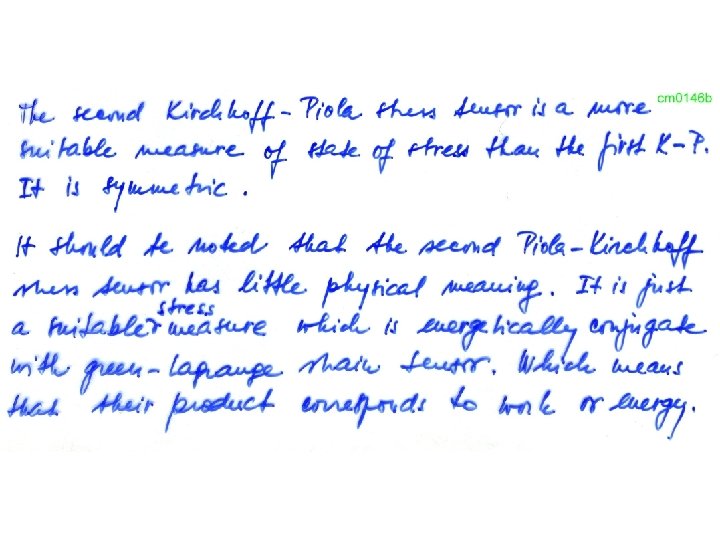 cm0146b
The second Kirchhoff-Piola stress tensor is a more
suitable measure of state of stress than the first K-P.
It is symmetric.
It should be noted that the second Piola-Kirchhoff
stress tensor has little physical meaning. It is just
stress
a suitable measure which is energetically conjugate
with green-lagrange strain tensor. Which means
that their product corresponds to work or energy.